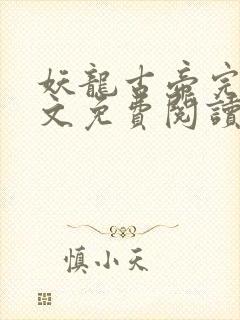 妖龍古帝完
文免費閱讀
慎小天